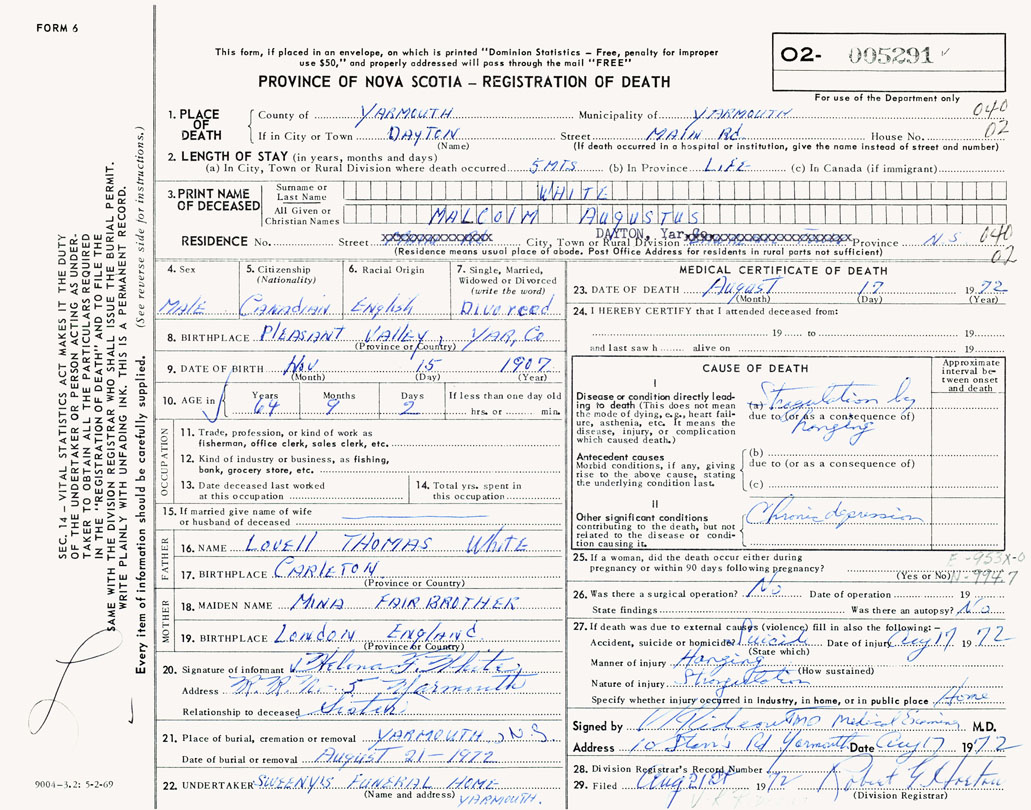 FORM 6
This form, if placed in an envelope, on which is printed "Dominion Statistics – Free, penalty for improper
use $50," and properly addressed will pass through the mail "FREE"
PROVINCE OF NOVA SCOTIA – REGISTRATION OF DEATH
O2- 005291
For use of the Department only
040
02
1. PLACE OF DEATH
County of YARMOUTH Municipality of YARMOUTH
If in City or Town DAYTON Street MAIN Rd. House No.
(Name) (If death occurred in a hospital or institution, give the name instead of street and number)
2. LENGTH OF STAY (in years, months and days)
(a) In City, Town or Rural Division where death occurred 5 MTS (b) In Province LIFE (c) In Canada (if immigrant)
3. PRINT NAME OF DECEASED
Surname or Last Name WHITE
All Given or Christian Names MALCOLM AUGUSTUS
DAYTON, Yar.
RESIDENCE No. Street City, Town or Rural Division Province N S
040
02
(Residence means usual place of abode. Post Office Address for residents in rural parts not sufficient)
4. Sex
MALE
5. Citizenship (Nationality)
Canadian
6. Racial Origin
English
7. Single, Married, Widowed or Divorced (write the word)
Divorced
8. BIRTHPLACE PLEASANT VALLEY, YAR, Co
(Province or Country)
9. DATE OF BIRTH Nov 15 1907
(Month) (Day) (Year)
10. AGE in
Years Months Days If less than one day old
64 9 2 hrs. or min.
OCCUPATION
11. Trade, profession, or kind of work as
fisherman, office clerk, sales clerk, etc.
12. Kind of industry or business, as fishing,
bank, grocery store, etc.
13. Date deceased last worked
at this occupation
14. Total yrs. spent in
this occupation
15. If married give name of wife
or husband of deceased
FATHER
16. NAME LOVELL THOMAS White
17. BIRTHPLACE CARLETON
(Province or Country)
MOTHER
18. MAIDEN NAME MINA FAIRBROTHER
19. BIRTHPLACE LONDON ENGLAND
(Province or Country)
20. Signature of informant Helena F. White
Address R.R. N- 5 Yarmouth
Relationship to deceased Sister
21. Place of burial, cremation or removal YARMOUTH, N.S.
Date of burial or removal AUGUST 21 - 1972
22. UNDERTAKER SWEENYS FUNERAL HOME
(Name and address) YARMOUTH.
MEDICAL CERTIFICATE OF DEATH
23. DATE OF DEATH August 17 1972
(Month) (Day) (Year)
24. I HEREBY CERTIFY that I attended deceased from:
19 to 19
and last saw h alive on 19
CAUSE OF DEATH
Approximate interval between onset and death
I
Disease or condition directly lead-
ing to death (This does not mean
the mode of dying, e.g., heart fail-
ure, asthenia, etc. It means the
disease, injury, or complication
which caused death.)
(a) Strangulation by
due to (or as a consequence of)
hanging
Antecedent causes
Morbid conditions, if any, giving
rise to the above cause, stating
the underlying condition last.
(b)
due to (or as a consequence of)
(c)
II
Other significant conditions
contributing to the death, but not
related to the disease or condi-
tion causing it.
Chronic depression
25. If a woman, did the death occur either during
pregnancy or within 90 days following pregnancy?
(Yes or No)
E-953X-0
N-994.7
26. Was there a surgical operation? No Date of operation 19
State findings Was there an autopsy? No
27. If death was due to external causes (violence) fill in also the following:–
Accident, suicide or homicide? Suicide Date of injury Aug 17 1972
(State which)
Manner of injury Hanging
(How sustained)
Nature of injury Strangulation
Specify whether injury occurred in industry, in home, or in public place Home
Signed by MD Medical Examiner M.D.
Address 10 Rd Yarmouth Date Aug 17 1972
28. Division Registrar's Record Number
29. Filed Aug 21st 1972 Robert G Horton
(Division Registrar)
SEC. 14 – VITAL STATISTICS ACT MAKES IT THE DUTY
OF THE UNDERTAKER OR PERSON ACTING AS UNDER-
TAKER TO OBTAIN ALL THE PARTICULARS REQUIRED
IN THE "REGISTRATION OF DEATH" AND TO FILE THE
SAME WITH THE DIVISION REGISTRAR WHO SHALL ISSUE THE BURIAL PERMIT.
WRITE PLAINLY WITH UNFADING INK. THIS IS A PERMANENT RECORD.
Every item of information should be carefully supplied. (See reverse side for instructions.)
9004-3.2: 5-2-69